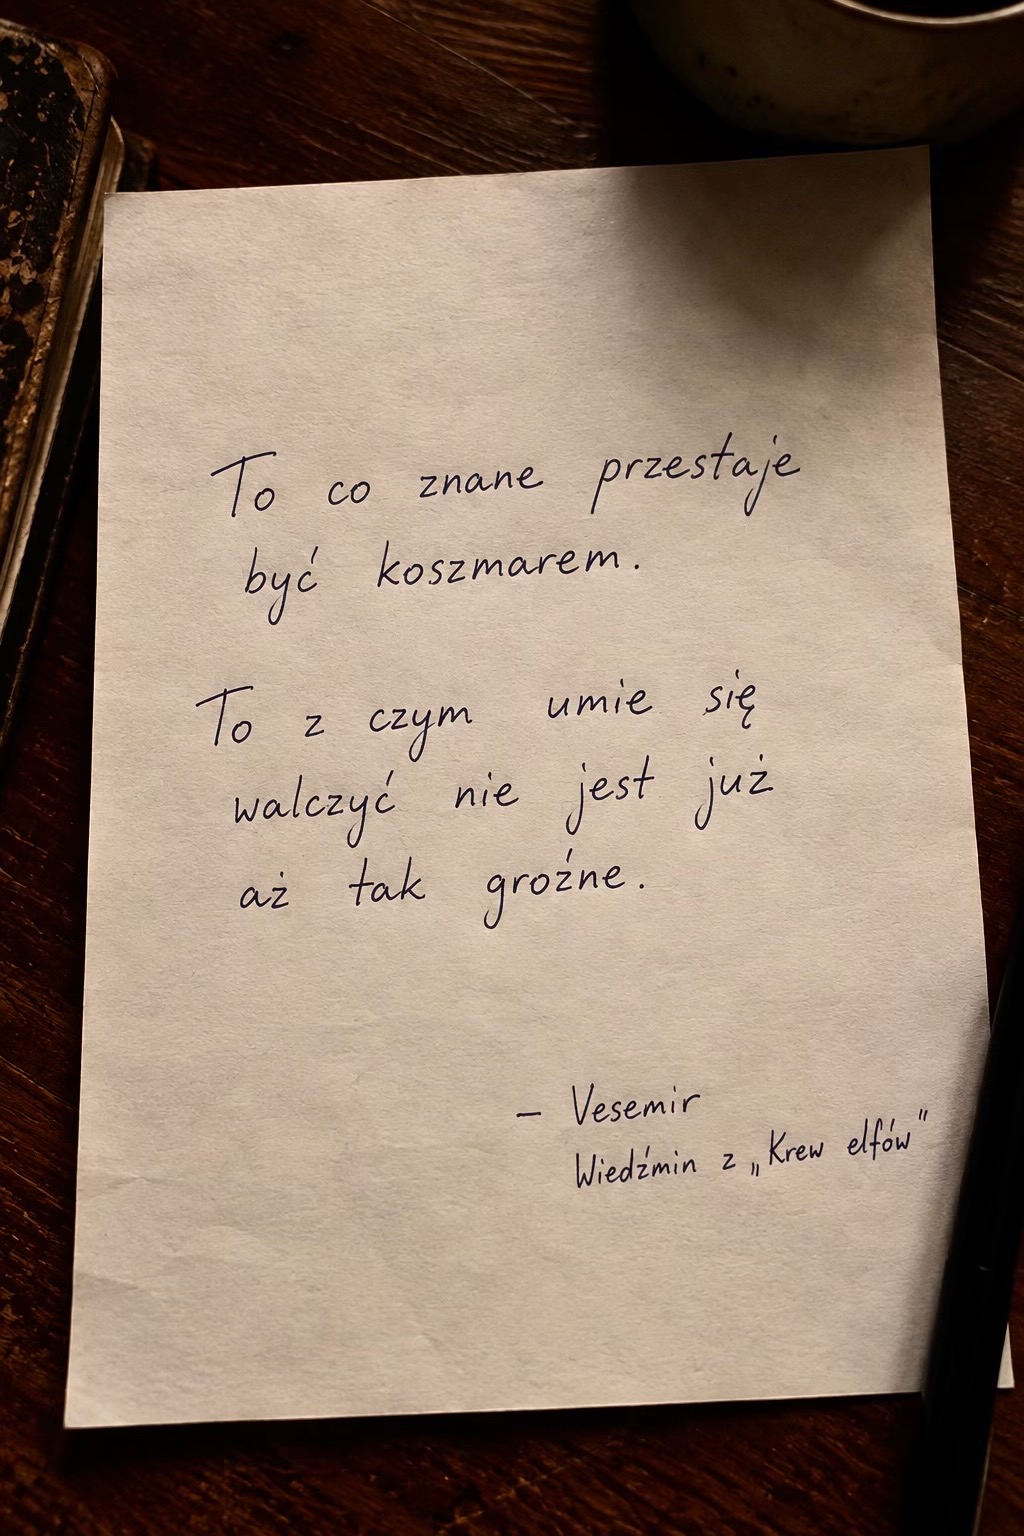 To co znane przestaje
być koszmarem.
To z czym umie się
walczyć nie jest już
aż tak groźne.
– Vesemir
Wiedźmin z „Krew elfów"